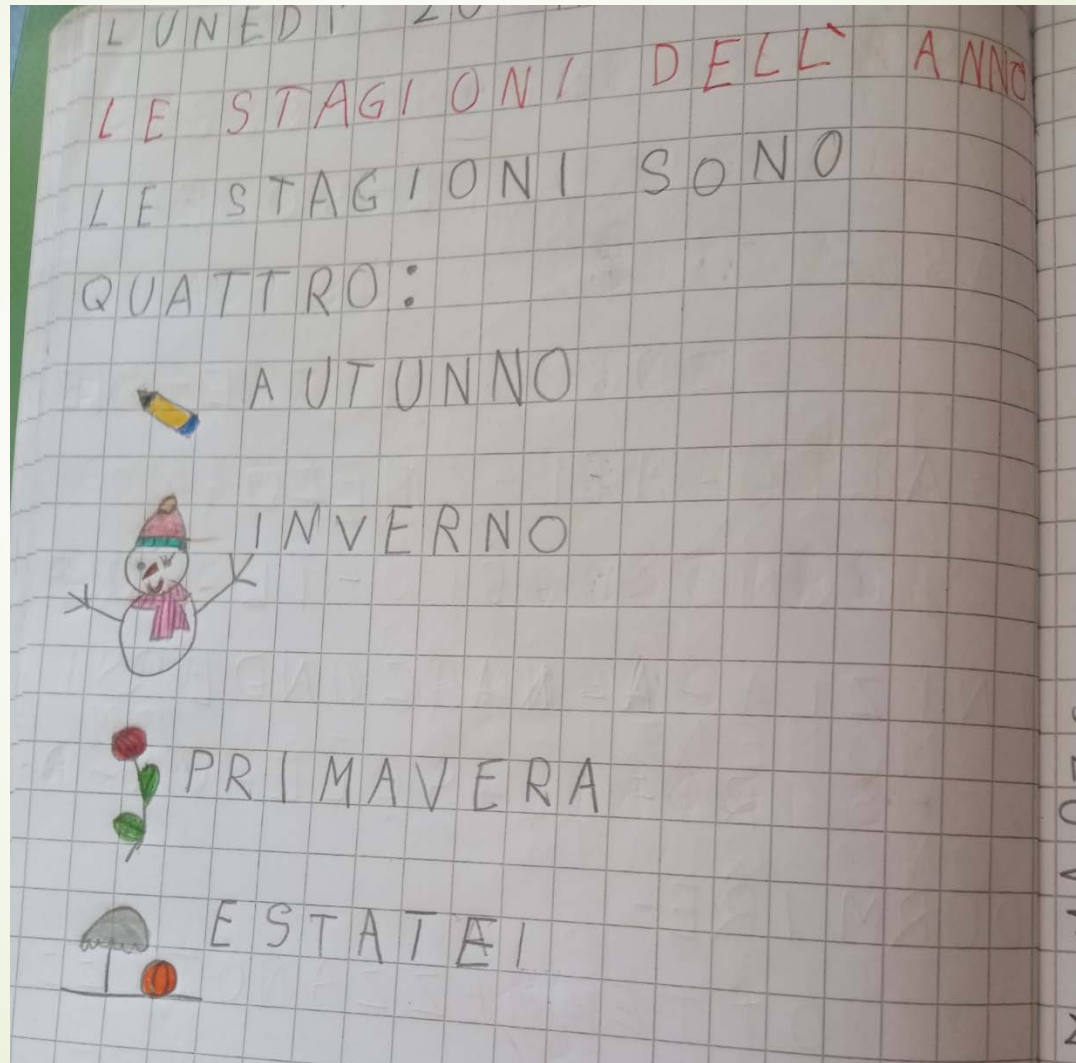 LUNEDI 20
LE STAGIONI DELL' ANNO
LE STAGIONI SONO
QUATTRO:
AUTUNNO
INVERNO
PRIMAVERA
ESTATEI